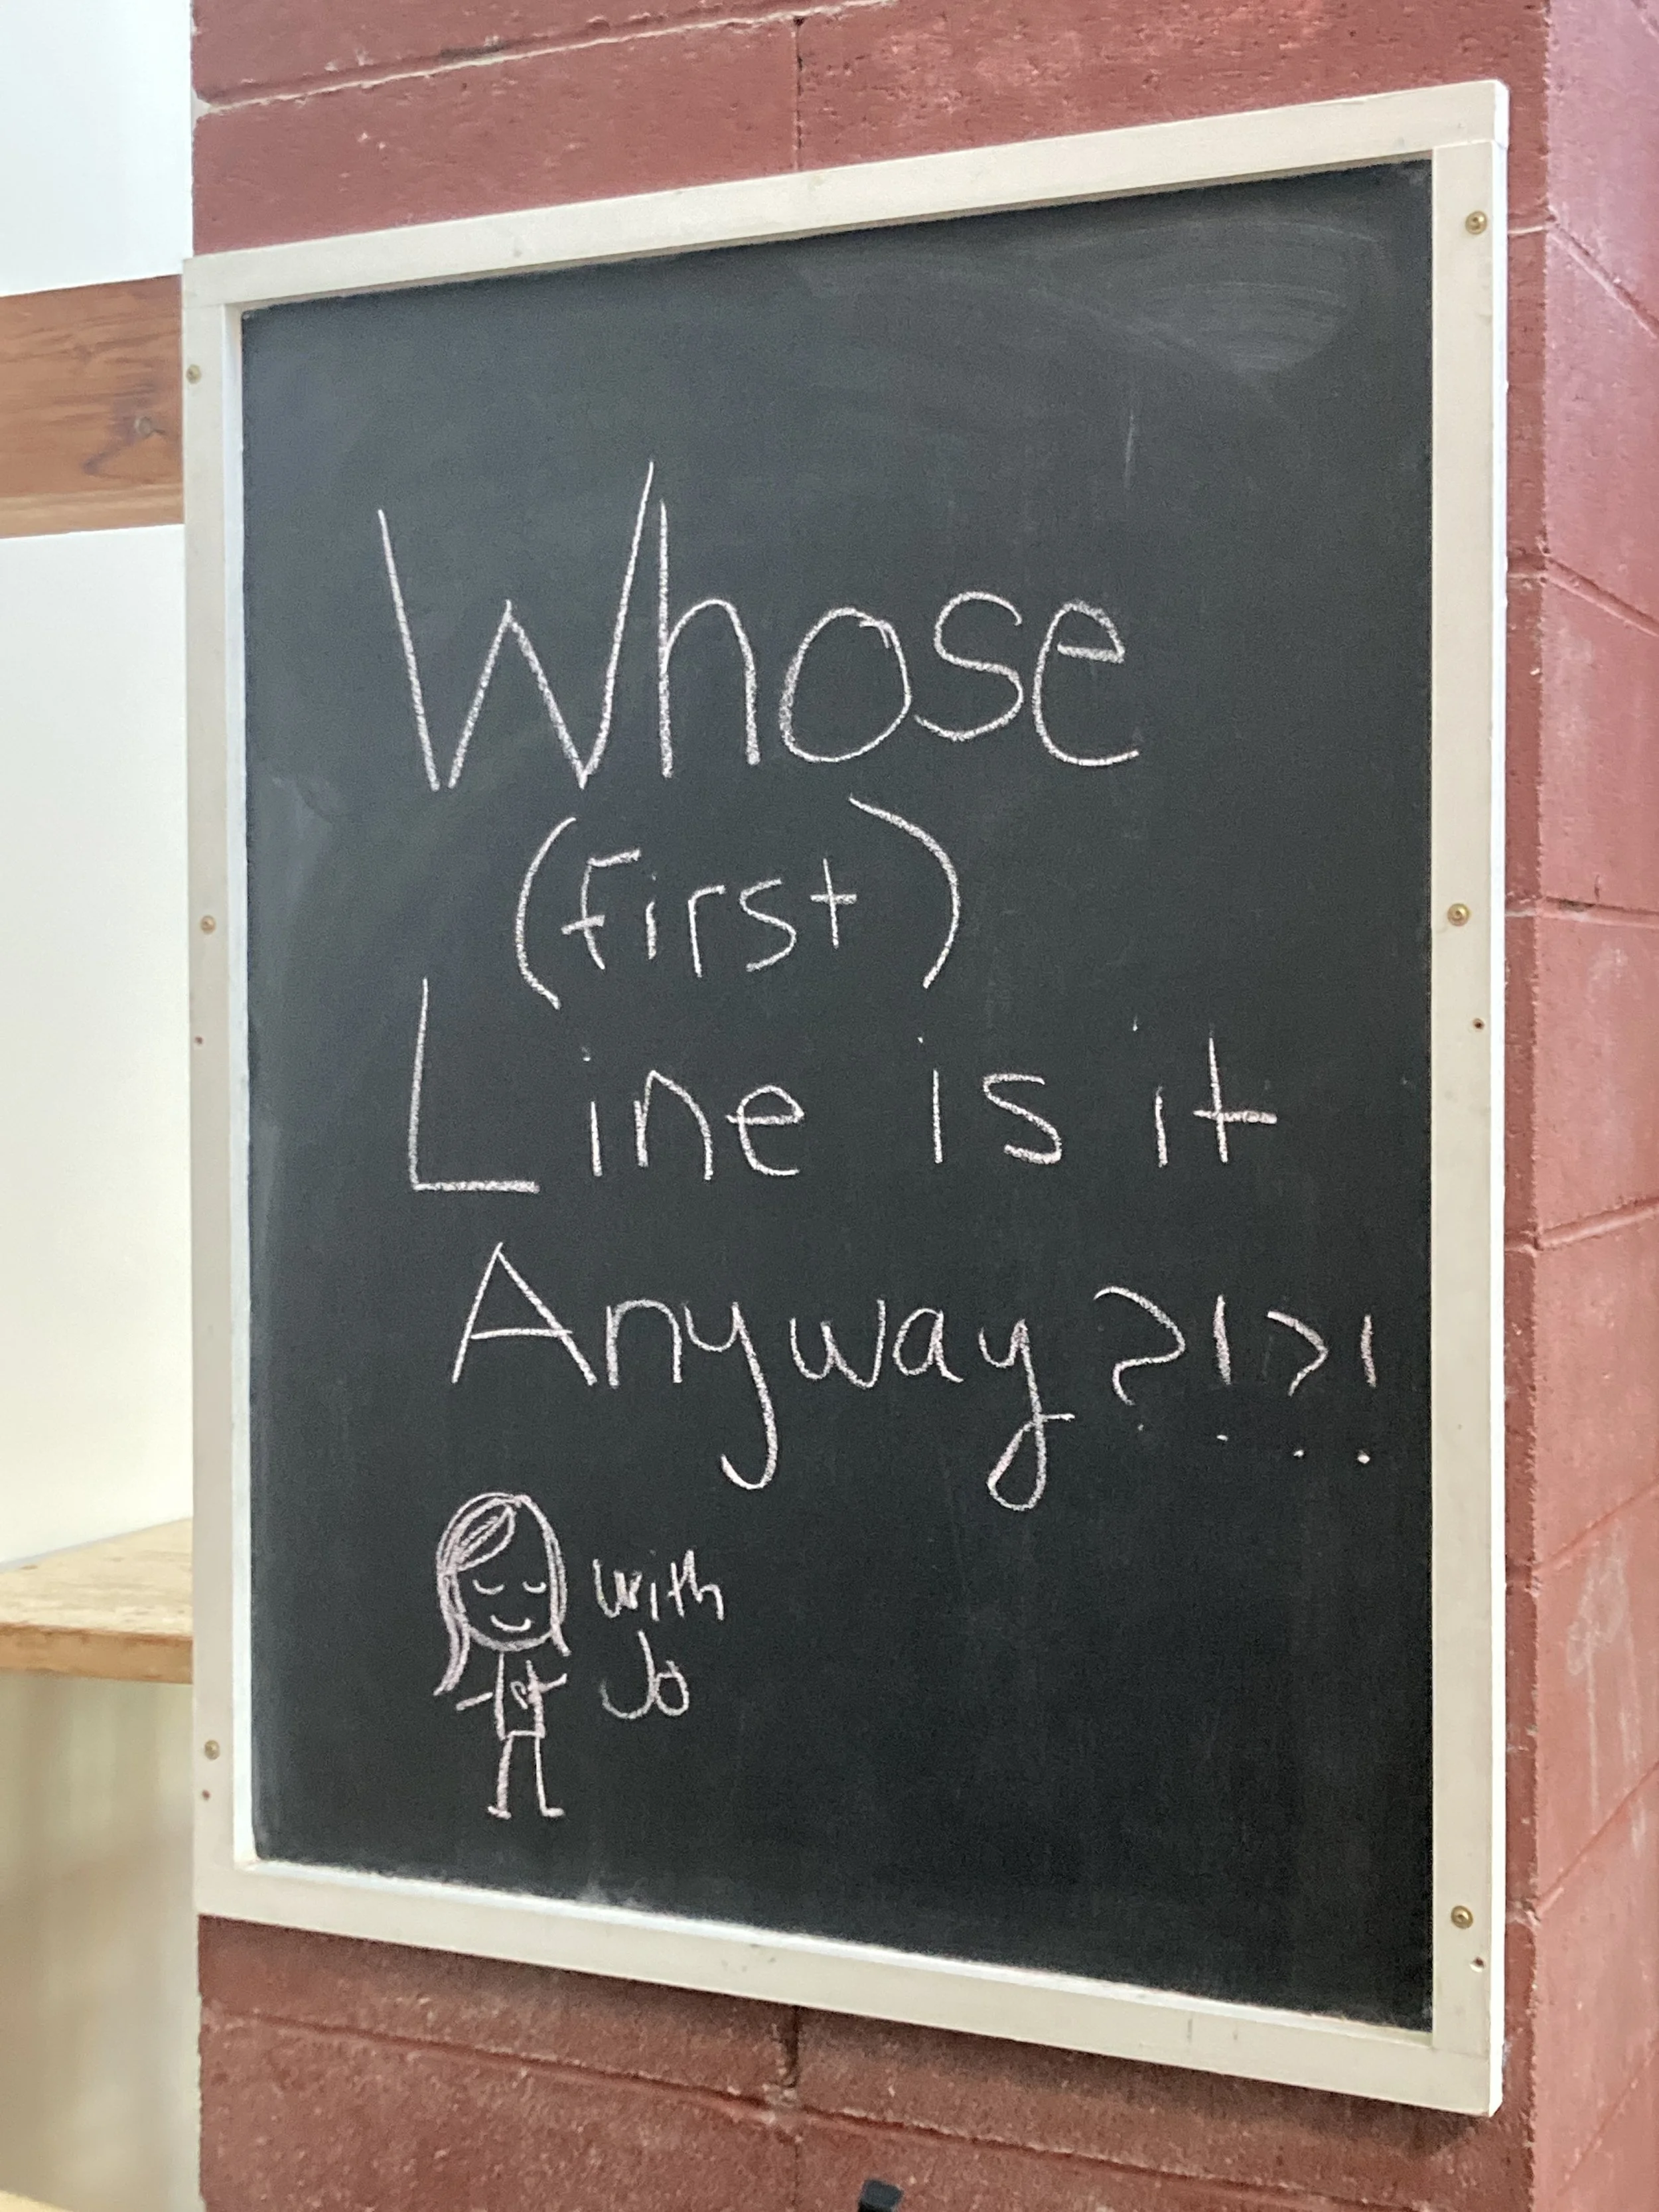 Whose
(first)
Line is it
Anyway?!?!
with
Jo